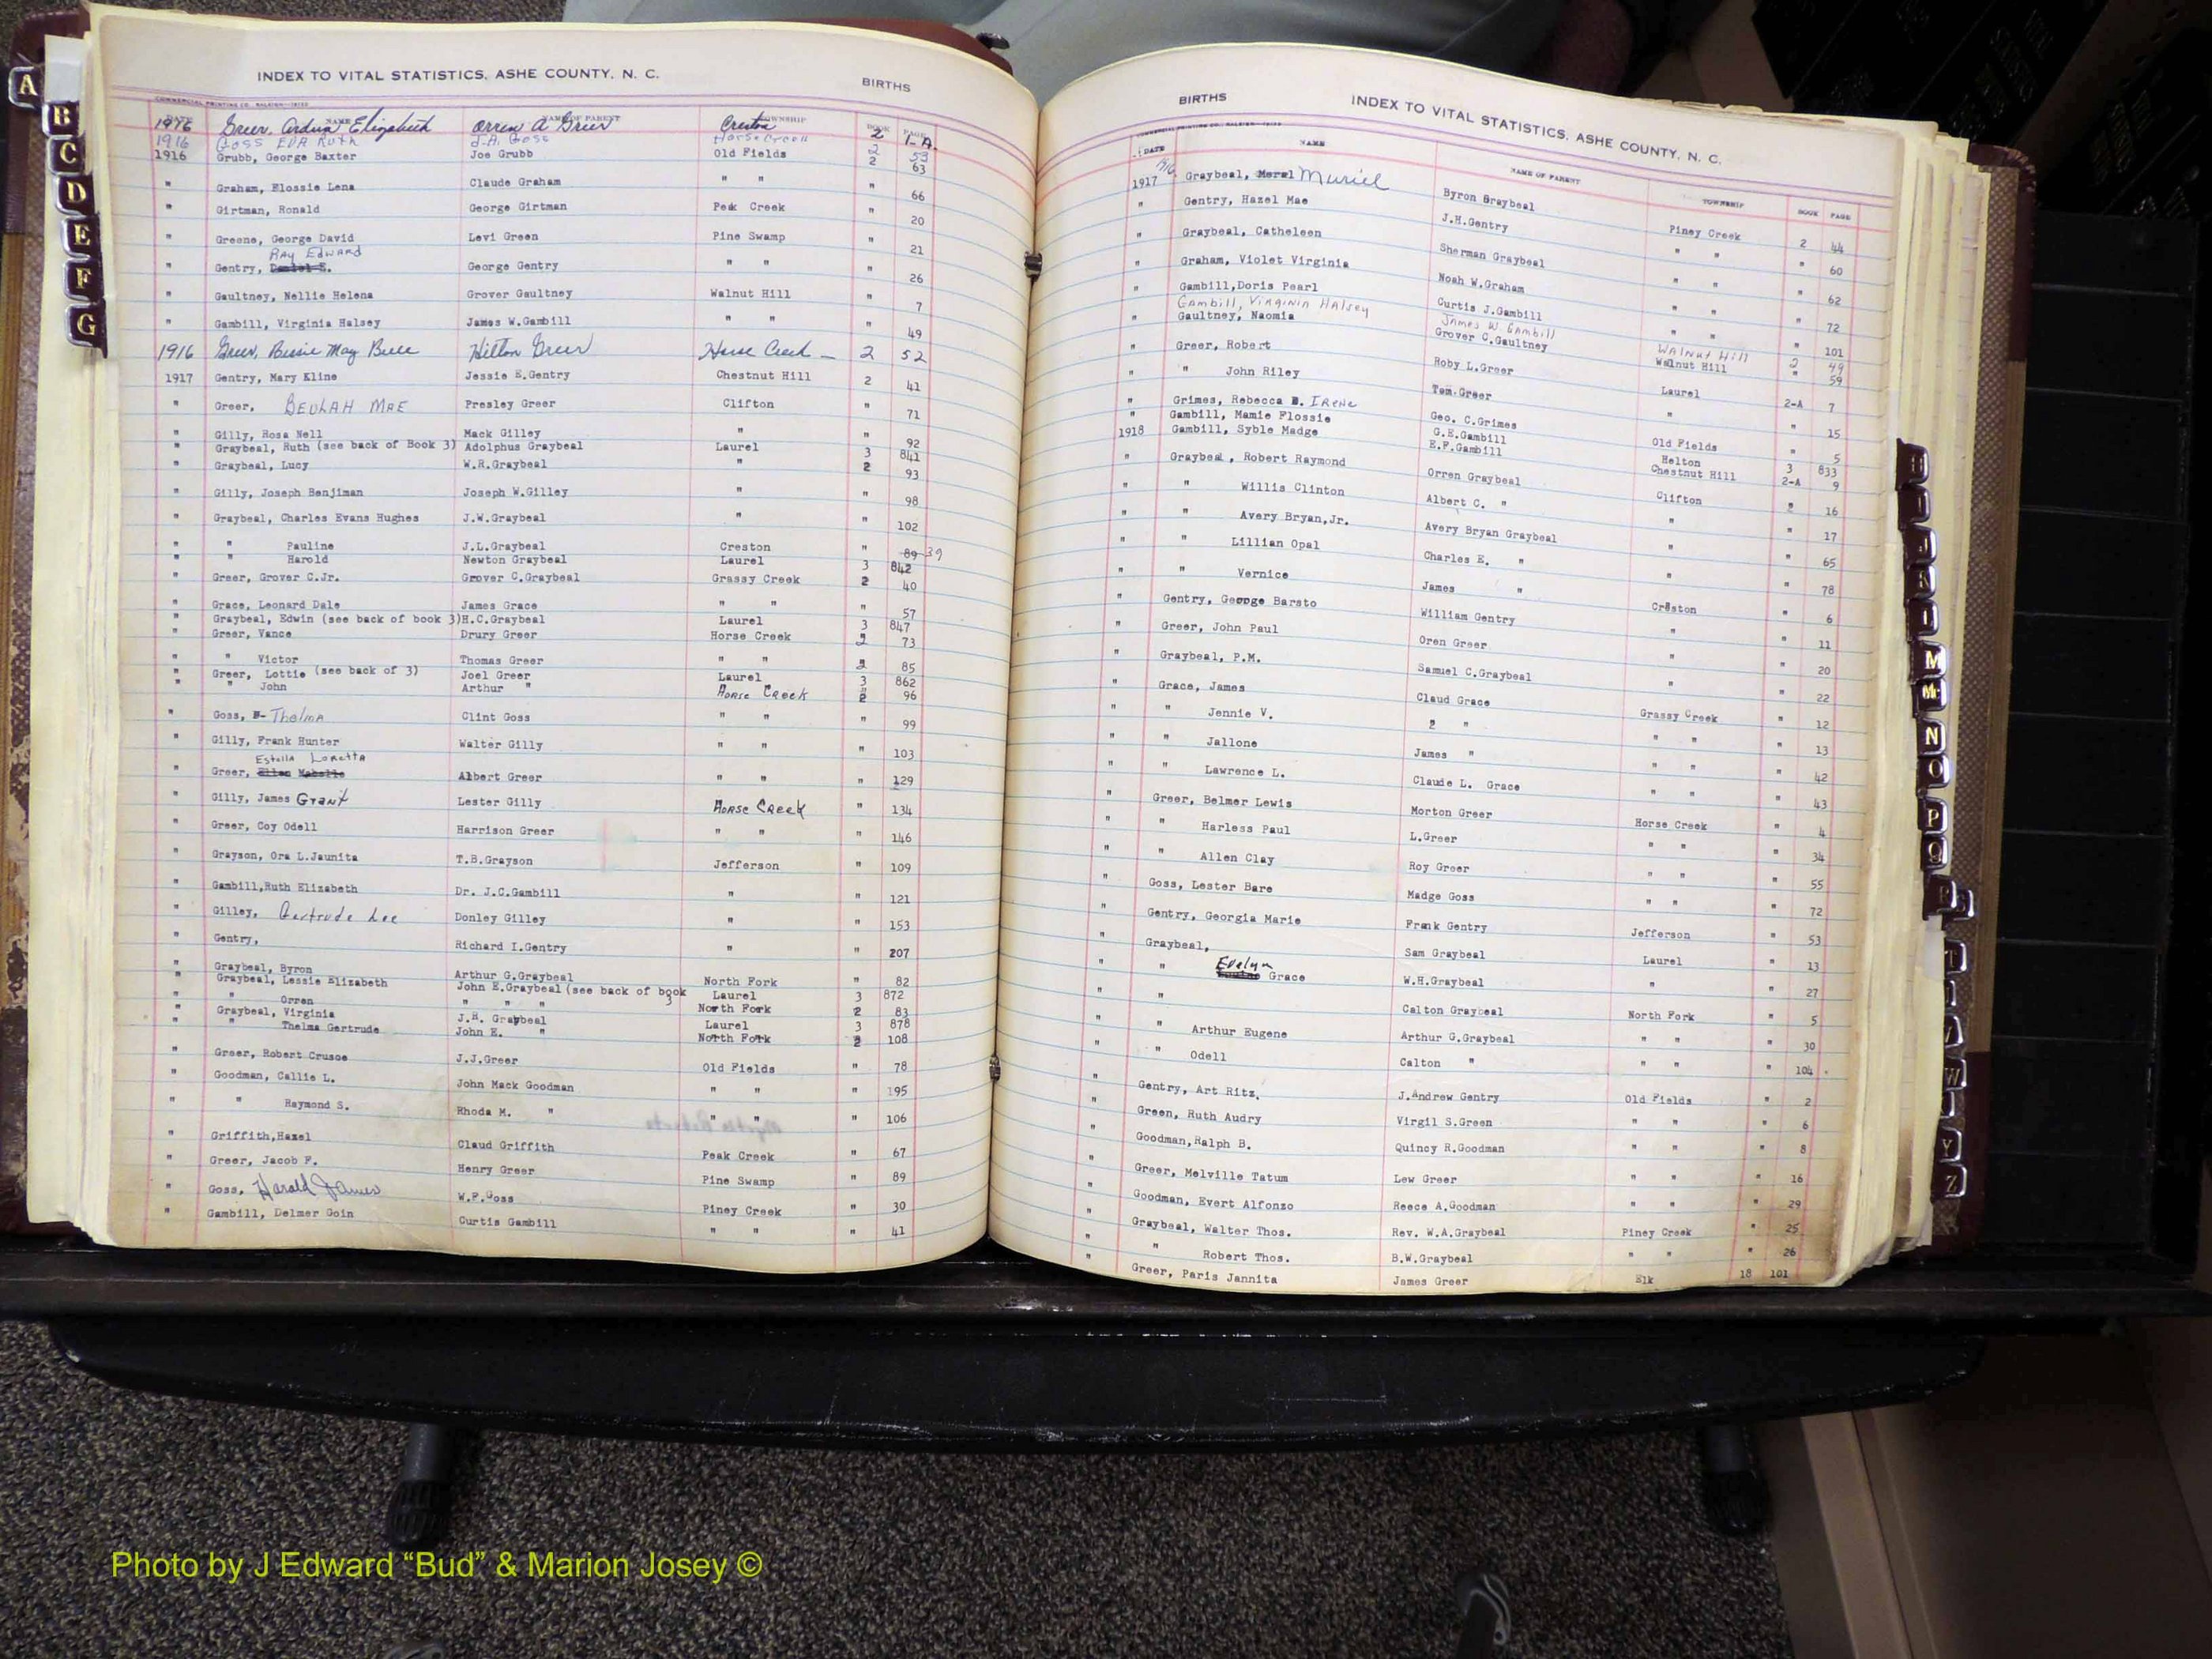 INDEX TO VITAL STATISTICS, ASHE COUNTY, N. C. BIRTHS
COMMERCIAL PRINTING CO., RALEIGH
DATE NAME NAME OF PARENT TOWNSHIP BOOK PAGE
1916 Greer, Elizabeth Orren A Greer Creston 2 1-A.
1916 Goss Eva Ruth J.A. Goss Horse Creek 2 53
1916 Grubb, George Baxter Joe Grubb Old Fields 2 63
" Graham, Elossie Lena Claude Graham " " " 66
" Girtman, Ronald George Girtman Peak Creek " 20
" Greene, George David Levi Green Pine Swamp " 21
RAY EDWARD
" Gentry, Daniel E. George Gentry " " " 26
" Gaultney, Nellie Helena Grover Gaultney Walnut Hill " 7
" Gambill, Virginia Halsey James W.Gambill " " " 49
1916 Greer, Bessie May Bell Hilton Greer Horse Creek 2 52
1917 Gentry, Mary Kline Jessie E.Gentry Chestnut Hill 2 41
" Greer, BEULAH MAE Presley Greer Clifton " 71
" Gilly, Rosa Nell Mack Gilley " " 92
" Graybeal, Ruth (see back of Book 3) Adolphus Graybeal Laurel 3 841
" Graybeal, Lucy W.R.Graybeal " 2 93
" Gilly, Joseph Benjiman Joseph W.Gilley " " 98
" Graybeal, Charles Evans Hughes J.W.Graybeal " " 102
" " Pauline J.L.Graybeal Creston " 89 39
" " Harold Newton Graybeal Laurel 3 842
" Greer, Grover C.Jr. Grover C.Graybeal Grassy Creek 2 40
" Grace, Leonard Dale James Grace " " " 57
" Graybeal, Edwin (see back of book 3) H.C.Graybeal Laurel 3 847
" Greer, Vance Drury Greer Horse Creek 2 73
" " Victor Thomas Greer " " 2 85
" Greer, Lottie (see back of 3) Joel Greer Laurel 3 862
" " John Arthur " HORSE CREEK 2 96
" Goss, Thelma Clint Goss " " " 99
" Gilly, Frank Hunter Walter Gilly " " " 103
Estella Loretta
" Greer, Ellen Mabelle Albert Greer " " " 129
" Gilly, James Grant Lester Gilly HORSE CREEK " 134
" Greer, Coy Odell Harrison Greer " " " 146
" Grayson, Ora L.Jaunita T.B.Grayson Jefferson " 109
" Gambill,Ruth Elizabeth Dr. J.C.Gambill " " 121
" Gilley, Gertrude Lee Donley Gilley " " 153
" Gentry, Richard I.Gentry " " 207
" Graybeal, Byron Arthur G.Graybeal North Fork " 82
" Graybeal, Lessie Elizabeth John E.Graybeal (see back of book 3 Laurel 3 872
" " Orren " " " North Fork 2 83
" Graybeal, Virginia J.R. Graybeal Laurel 3 878
" " Thelma Gertrude John E. " North Fork 2 108
" Greer, Robert Crusoe J.J.Greer Old Fields " 78
" Goodman, Callie L. John Mack Goodman " " " 195
" " Raymond S. Rhoda M. " " " " 106
" Griffith,Hazel Claud Griffith Peak Creek " 67
" Greer, Jacob F. Henry Greer Pine Swamp " 89
" Goss, Harold James W.F.Goss Piney Creek " 30
" Gambill, Delmer Goin Curtis Gambill " " " 41
BIRTHS INDEX TO VITAL STATISTICS, ASHE COUNTY, N. C.
DATE NAME NAME OF PARENT TOWNSHIP BOOK PAGE
1916
1917 Graybeal, Meral Muriel Byron Graybeal Piney Creek 2 44
" Gentry, Hazel Mae J.H.Gentry " " " 60
" Graybeal, Catheleen Sherman Graybeal " " " 62
" Graham, Violet Virginia Noah W.Graham " " " 72
" Gambill,Doris Pearl Curtis J.Gambill " " " 101
Gambill, Virginia Halsey James W Gambill Walnut Hill 2 49
" Gaultney, Naomia Grover C.Gaultney Walnut Hill " 59
" Greer, Robert Roby L.Greer Laurel 2-A 7
" " John Riley Tom.Greer " " 15
" Grimes, Rebecca IRENE Geo. C.Grimes Old Fields " 5
" Gambill, Mamie Flossie G.E.Gambill Helton 3 833
1918 Gambill, Syble Madge E.F.Gambill Chestnut Hill 2-A 9
" Graybeal, Robert Raymond Orren Graybeal Clifton " 16
" " Willis Clinton Albert C. " " " 17
" " Avery Bryan,Jr. Avery Bryan Graybeal " " 65
" " Lillian Opal Charles E. " " " 78
" " Vernice James " Creston " 6
" Gentry, George Barsto William Gentry " " 11
" Greer, John Paul Oren Greer " " 20
" Graybeal, P.M. Samuel C.Graybeal " " 22
" Grace, James Claud Grace Grassy Creek " 12
" " Jennie V. " " " " 13
" " Jallone James " " " " 42
" " Lawrence L. Claude L. Grace " " " 43
" Greer, Belmer Lewis Morton Greer Horse Creek " 4
" " Harless Paul L.Greer " " " 34
" " Allen Clay Roy Greer " " " 55
" Goss, Lester Bare Madge Goss " " " 72
" Gentry, Georgia Marie Frank Gentry Jefferson " 53
" Graybeal, Sam Graybeal Laurel " 13
" " Evelyn Grace W.H.Graybeal " " 27
" " Calton Graybeal North Fork " 5
" " Arthur Eugene Arthur G.Graybeal " " " 30
" " Odell Calton " " " " 104
" Gentry, Art Ritz, J.Andrew Gentry Old Fields " 2
" Green, Ruth Audry Virgil S.Green " " " 6
" Goodman,Ralph B. Quincy R.Goodman " " " 8
" Greer, Melville Tatum Lew Greer " " " 16
" Goodman, Evert Alfonzo Reece A.Goodman " " " 29
" Graybeal, Walter Thos. Rev. W.A.Graybeal Piney Creek " 25
" " Robert Thos. B.W.Graybeal " " " 26
" Greer, Paris Jannita James Greer Elk 18 101
A
B
C
D
E
F
G
H
I
J
K
L
M
Mc
N
O
P
Q
R
S
T
W
Y
Z
VITAL STATISTICS
Photo by J Edward “Bud” & Marion Josey ©